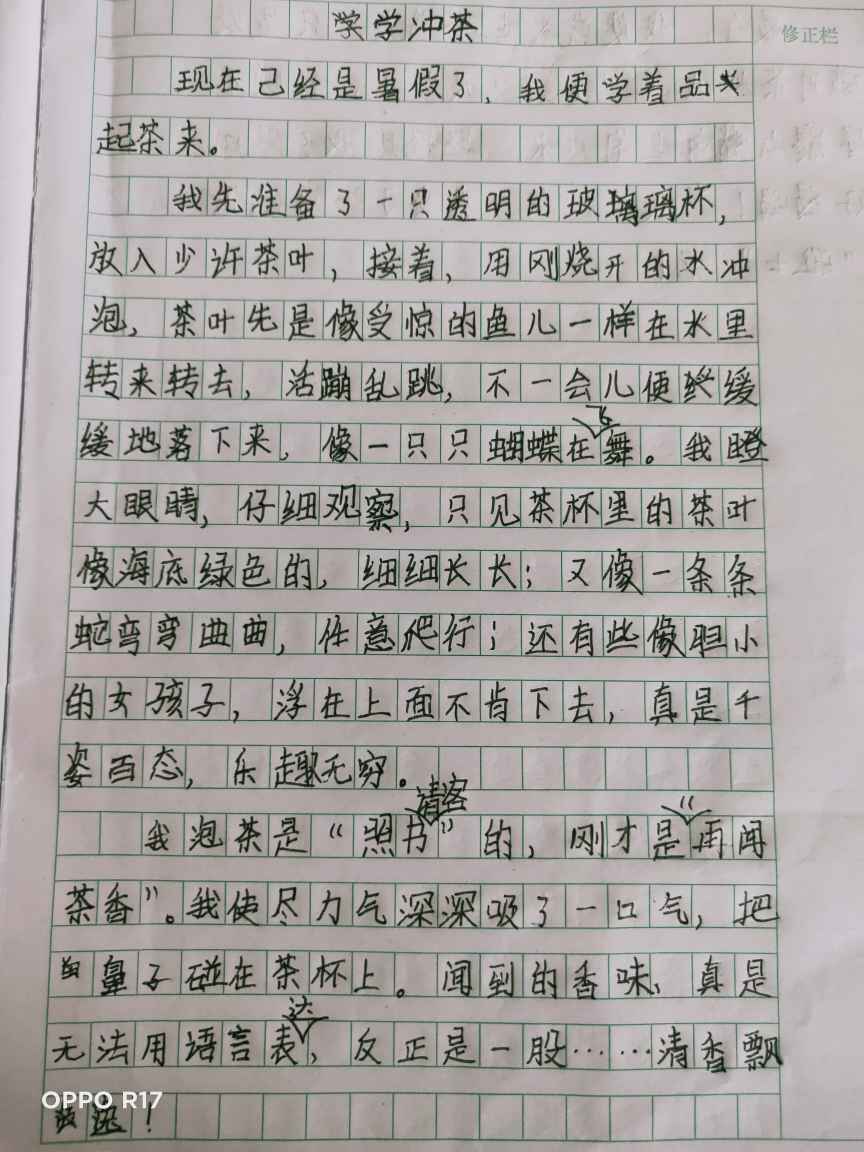 学学冲茶
修正栏
现在己经是暑假了，我便学着品
起茶来。
我先准备了一只透明的玻璃璃杯，
放入少许茶叶，接着，用刚烧开的水冲
泡，茶叶先是像受惊的鱼儿一样在水里
转来转去，活蹦乱跳，不一会儿便终缓
缓地落下来，像一只只蝴蝶在飞舞。我瞪
大眼睛，仔细观察，只见茶杯里的茶叶
像海底绿色的，细细长长；又像一条条
蛇弯弯曲曲，任意爬行；还有些像胆小
的女孩子，浮在上面不肯下去，真是千
姿百态，乐趣无穷。
我泡茶是“照书请客”的，刚才是“再闻
茶香”。我使尽力气深深吸了一口气，把
鼻子碰在茶杯上。闻到的香味，真是
无法用语言表达，反正是一股……清香飘
逸！
OPPO R17